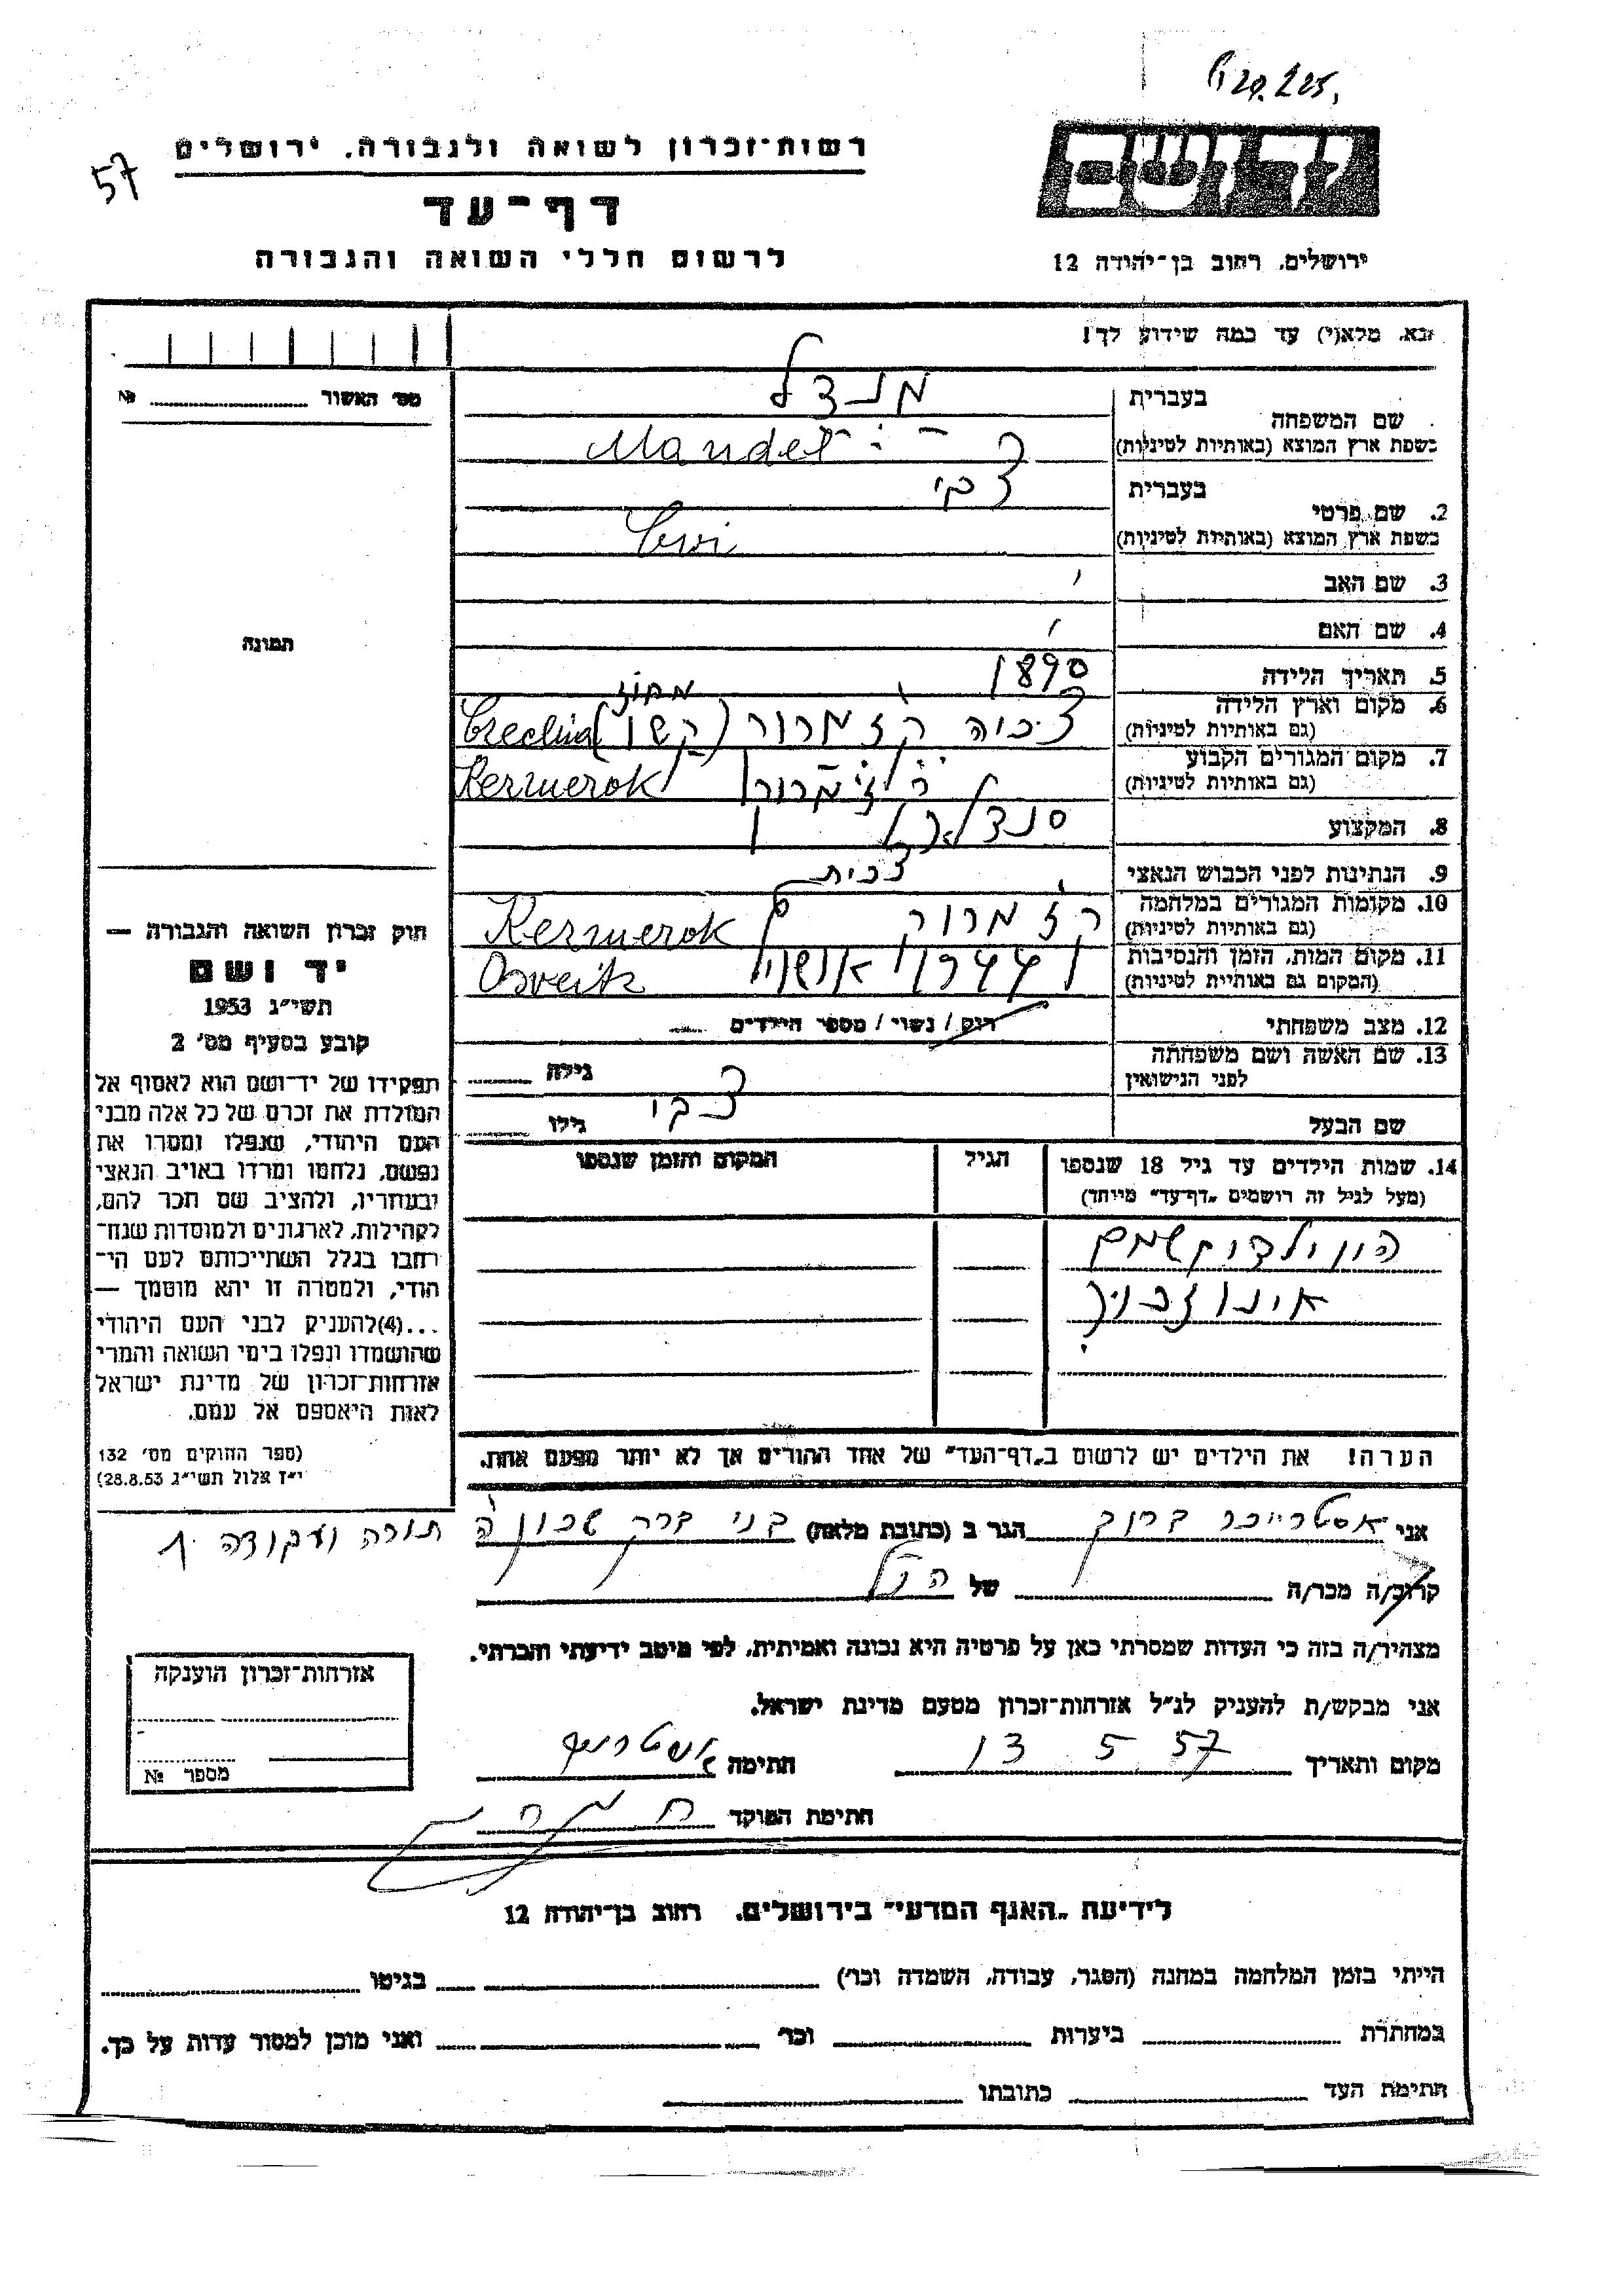 57
רשות־זכרון לשואה ולגבורה. ירושלים
יד ושם
דף־עד
לרשום חללי השואה והגבורה
ירושלים. רחוב בן־יהודה 12
נא. מלא(י) עד כמה שידוע לך!
מס׳ האשור № 
שם המשפחה
בעברית
מנדל
בשפת ארץ המוצא (באותיות לטיניות)
Mandel
2. שם פרטי
בעברית
צבי
בשפת ארץ המוצא (באותיות לטיניות)
Cvi
3. שם האב
4. שם האם
תמונה
5. תאריך הלידה
1890
6. מקום וארץ הלידה
(גם באותיות לטיניות)
מחוז
צ׳כיה קזמרוק (קשו) Czechia
7. מקום המגורים הקבוע
(גם באותיות לטיניות)
קזמרוק Kezmerok
8. המקצוע
סנדלר
9. הנתינות לפני הכבוש הנאצי
צכית
10. מקומות המגורים במלחמה
(גם באותיות לטיניות)
קזמרוק Kezmerok
11. מקום המות, הזמן והנסיבות
(המקום גם באותיות לטיניות)
Osveitz
12. מצב משפחתי
רוק / נשוי / מספר הילדים
13. שם האשה ושם משפחתה
לפני הנישואין
גילה
שם הבעל
צבי
גילו
14. שמות הילדים עד גיל 18 שנספו
(מעל לגיל זה רושמים „דף־עד״ מיוחד)
הגיל
המקום והזמן שנספו
היו ילדים שמם
אינו זכור
הערה! את הילדים יש לרשום ב„דף־העד״ של אחד ההורים אך לא יותר מפעם אחת.
חוק זכרון השואה והגבורה —
יד ושם
תשי״ג 1953
קובע בסעיף מס׳ 2
תפקידו של יד־ושם הוא לאסוף אל
המולדת את זכרם של כל אלה מבני
העם היהודי, שנפלו ומסרו את
נפשם, נלחמו ומרדו באויב הנאצי
ובעוזריו, ולהציב שם וזכר להם,
לקהילות, לארגונים ולמוסדות שנח־
רבו בגלל השתייכותם לעם הי־
הודי, ולמטרה זו יהא מוסמך —
...(4)להעניק לבני העם היהודי
שהושמדו ונפלו בימי השואה והמרי
אזרחות־זכרון של מדינת ישראל
לאות היאספם אל עמם.
(ספר החוקים מס׳ 132
י״ז אלול תשי״ג 28.8.53)
אני אסטרייכר ברוך הגר ב (כתובת מלאה) בני ברק שכונה תורה ועבודה
קרוב/ה מכר/ה של הנ״ל
מצהיר/ה בזה כי העדות שמסרתי כאן על פרטיה היא נכונה ואמיתית, לפי מיטב ידיעתי והכרתי.
אני מבקש/ת להעניק לנ״ל אזרחות־זכרון מטעם מדינת ישראל.
מקום ותאריך 13 5 57 חתימה
חתימת הפוקד
אזרחות־זכרון הוענקה
מספר №
לידיעת „האגף המדעי״ בירושלים. רחוב בן־יהודה 12
הייתי בזמן המלחמה במחנה (הסגר, עבודה, השמדה וכו׳) בגיטו
במחתרת ביערות וכו׳ ואני מוכן למסור עדות על כך.
חתימת העד כתובתו